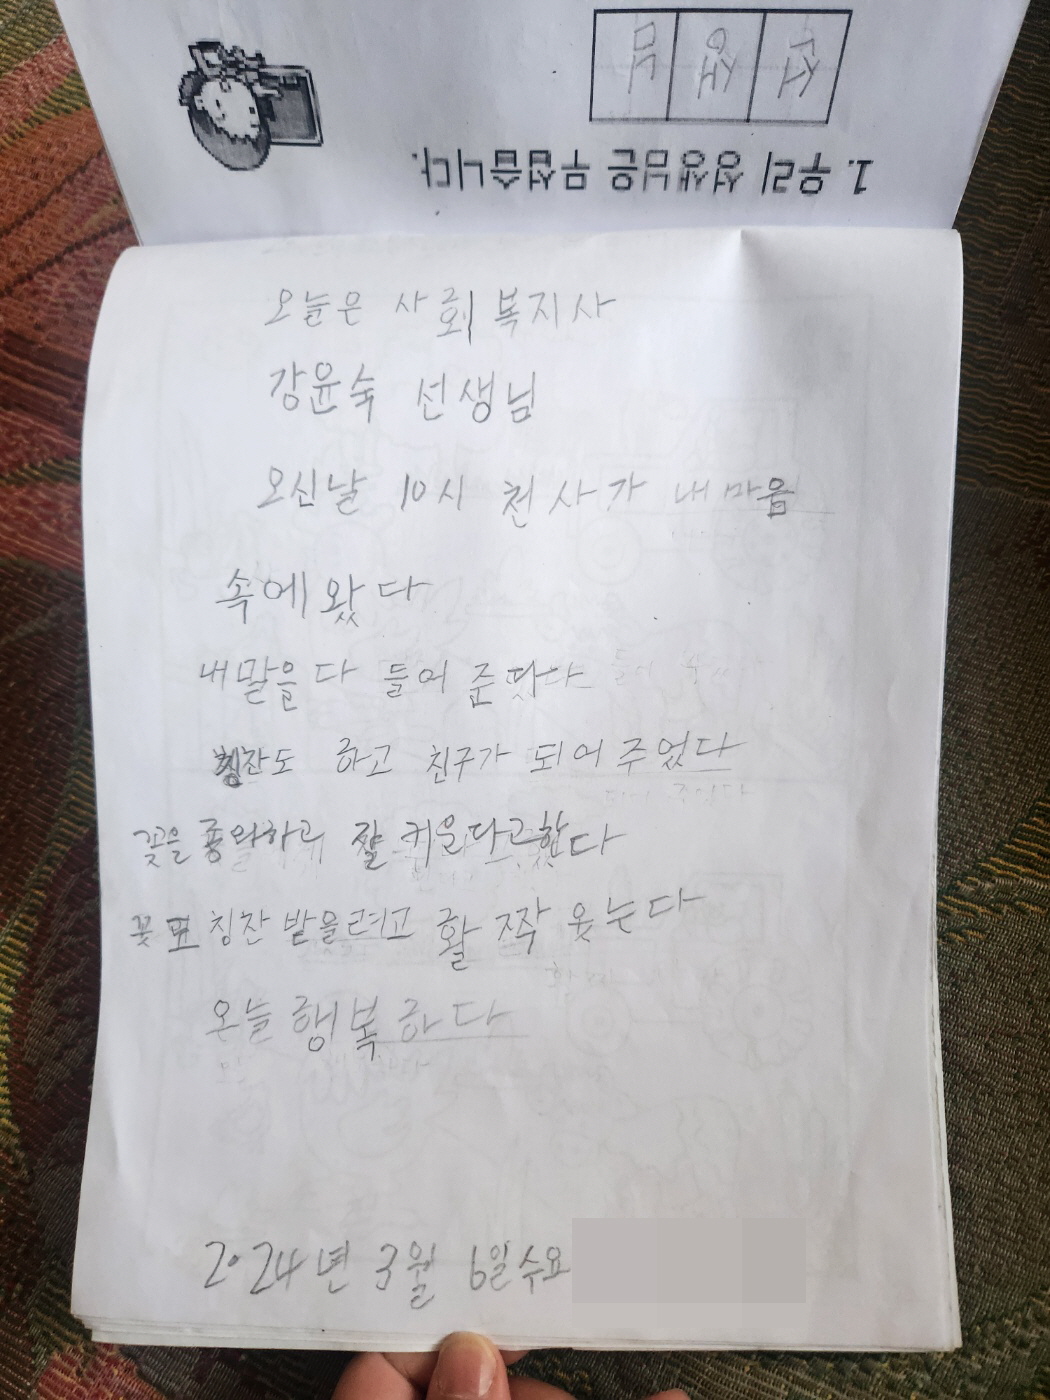 1. 우리 선생님은 유섭습니다.
오늘은 사회 복지사
강윤숙 선생님
오신날 10시 천사가 내 마음
속에 왔다
내말을 다 들어 준
칭찬도 하고 친구가 되어 주었다
꽃을 종아하고 잘 키운다고 한다
꽃도 칭찬 받을려고 활짝 웃는다
오늘 행복하다
2024년 3월 6일 수요